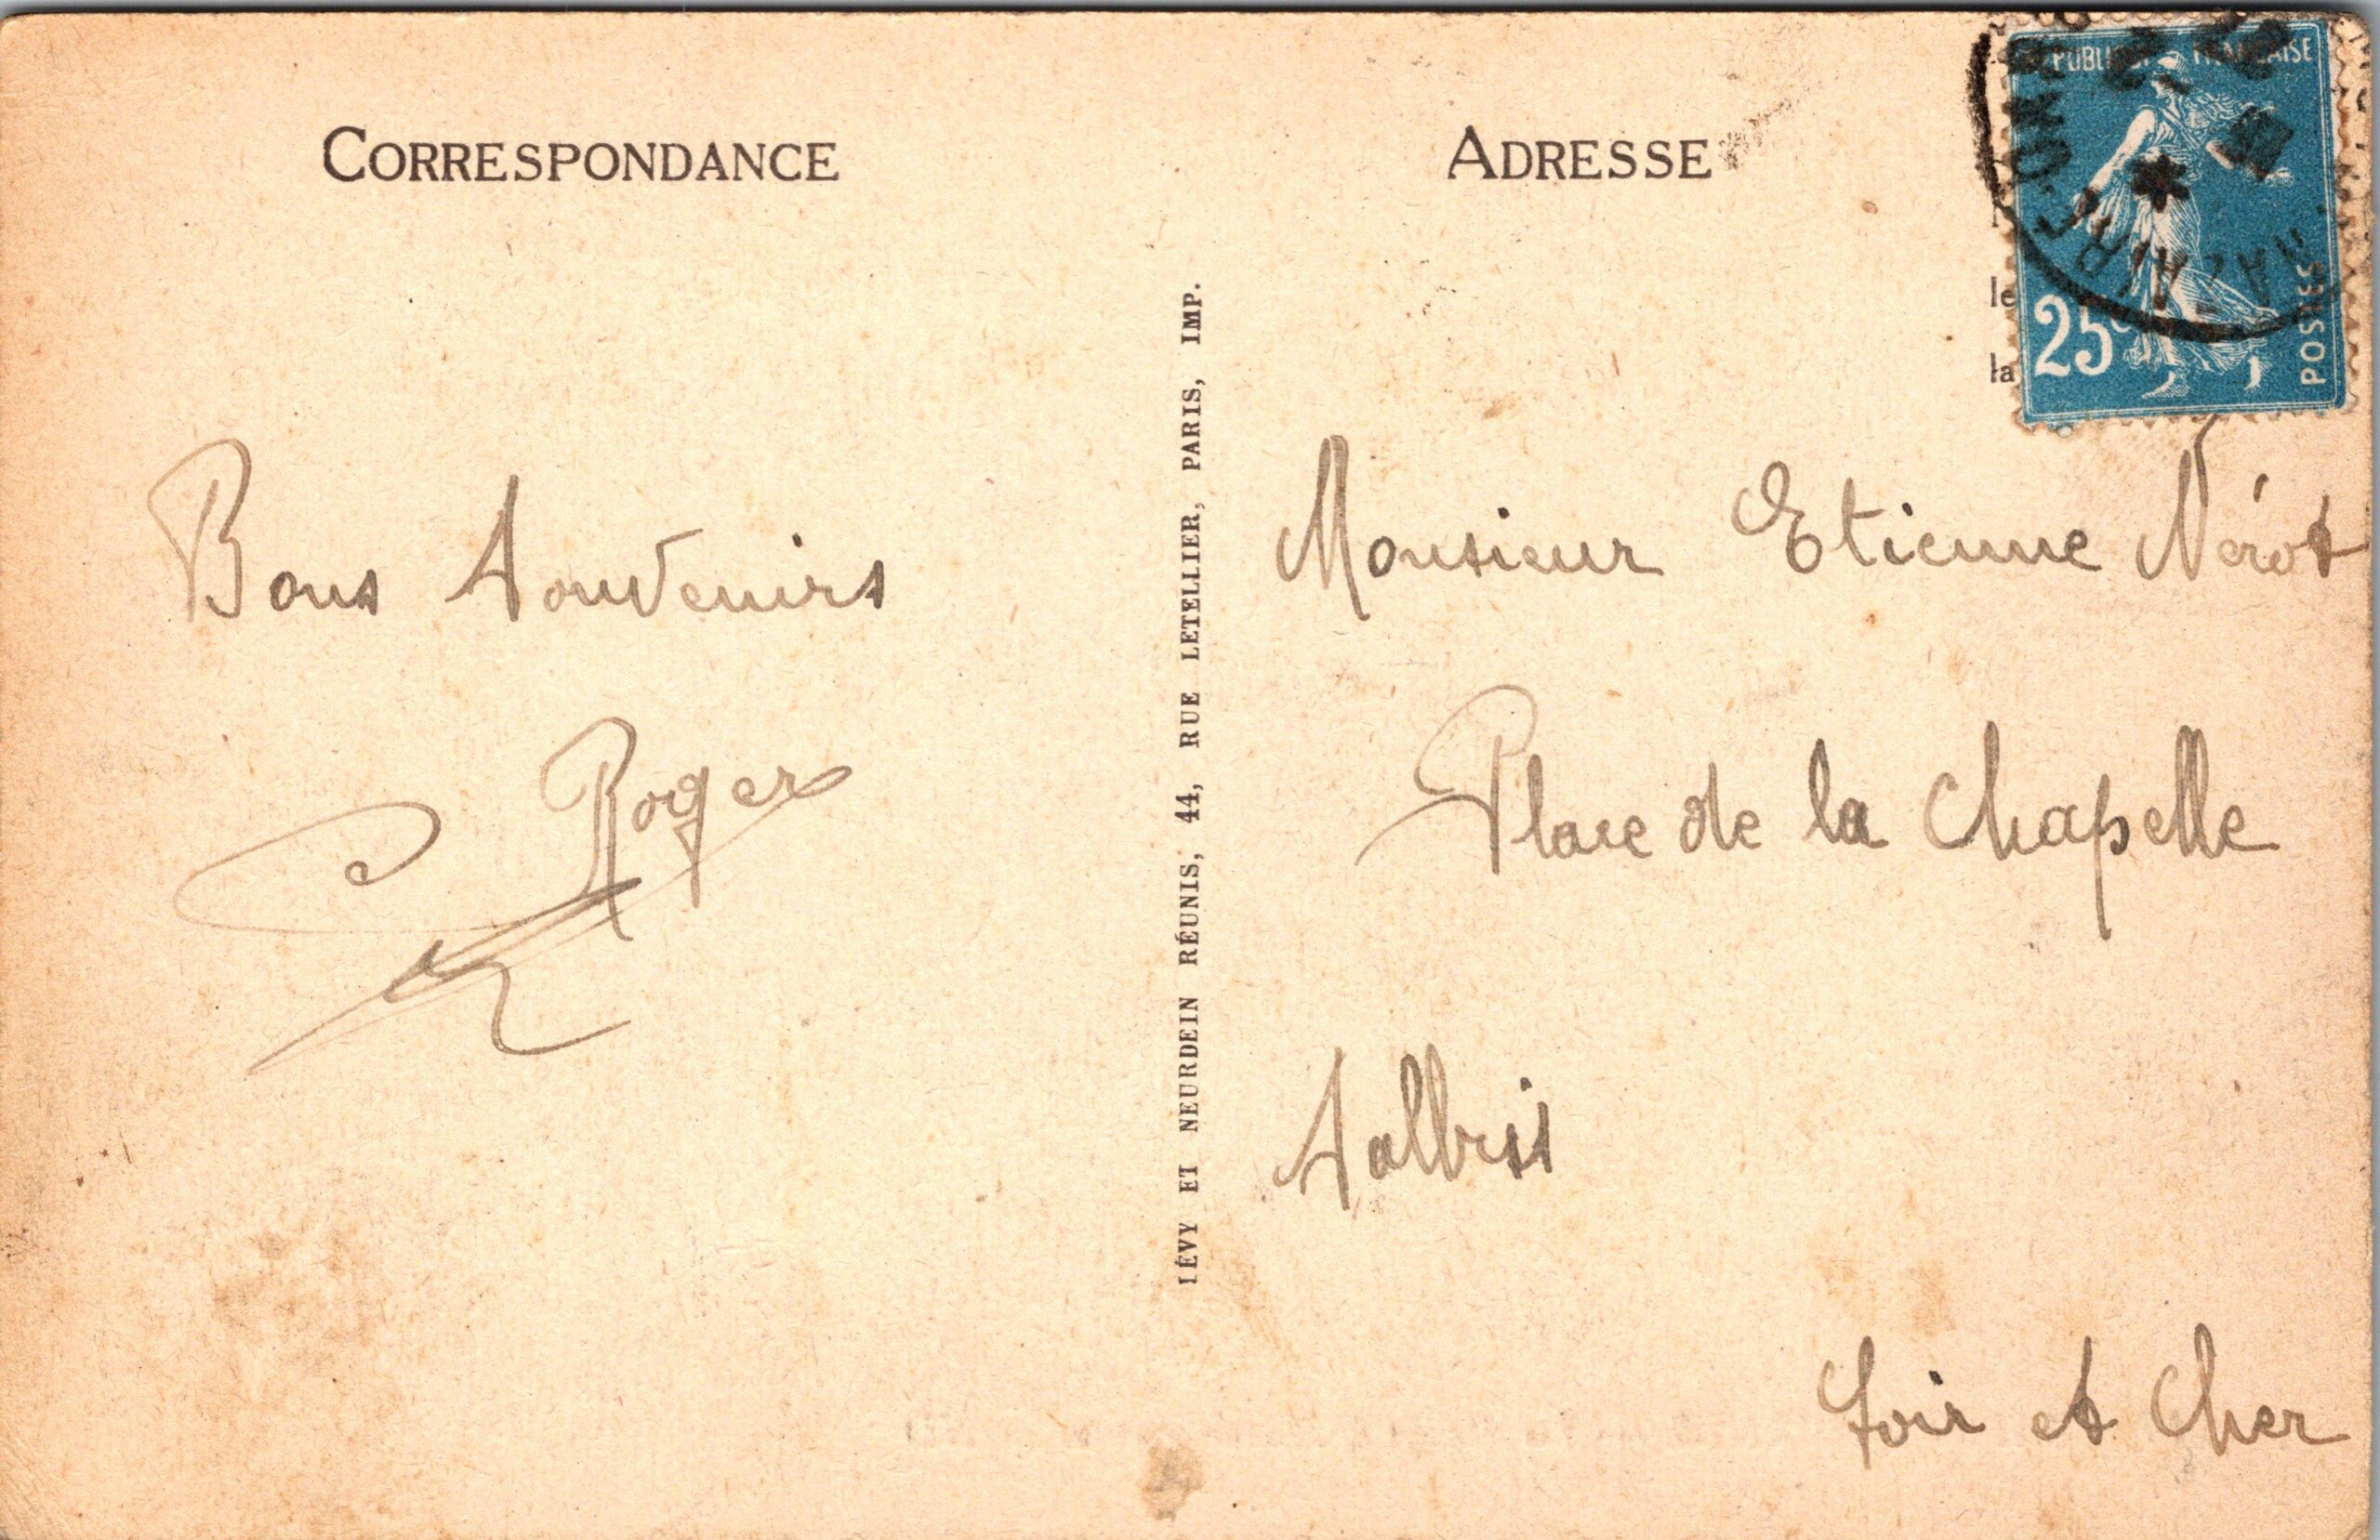 CORRESPONDANCE
Bons Souvenirs
Roger
LÉVY ET NEURDEIN RÉUNIS, 44, RUE LETELLIER, PARIS, IMP.
ADRESSE
RÉPUBLIQUE FRANÇAISE
25c
POSTES
le
la
Monsieur Etienne Nérot
Place de la Chapelle
Salbris
Loir et Cher